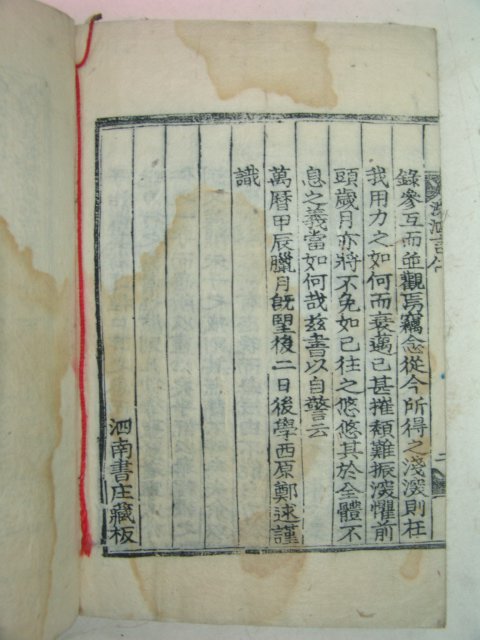 洙泗言仁
二
錄參互而並觀焉竊念從今所得之淺深則在
我用力之如何而衰邁已甚摧頹難振深懼前
頭歲月亦將不免如已往之悠悠其於全體不
息之義當如何哉玆書以自警云
萬曆甲辰臘月旣望後二日後學西原鄭逑謹
識
泗南書庄藏板